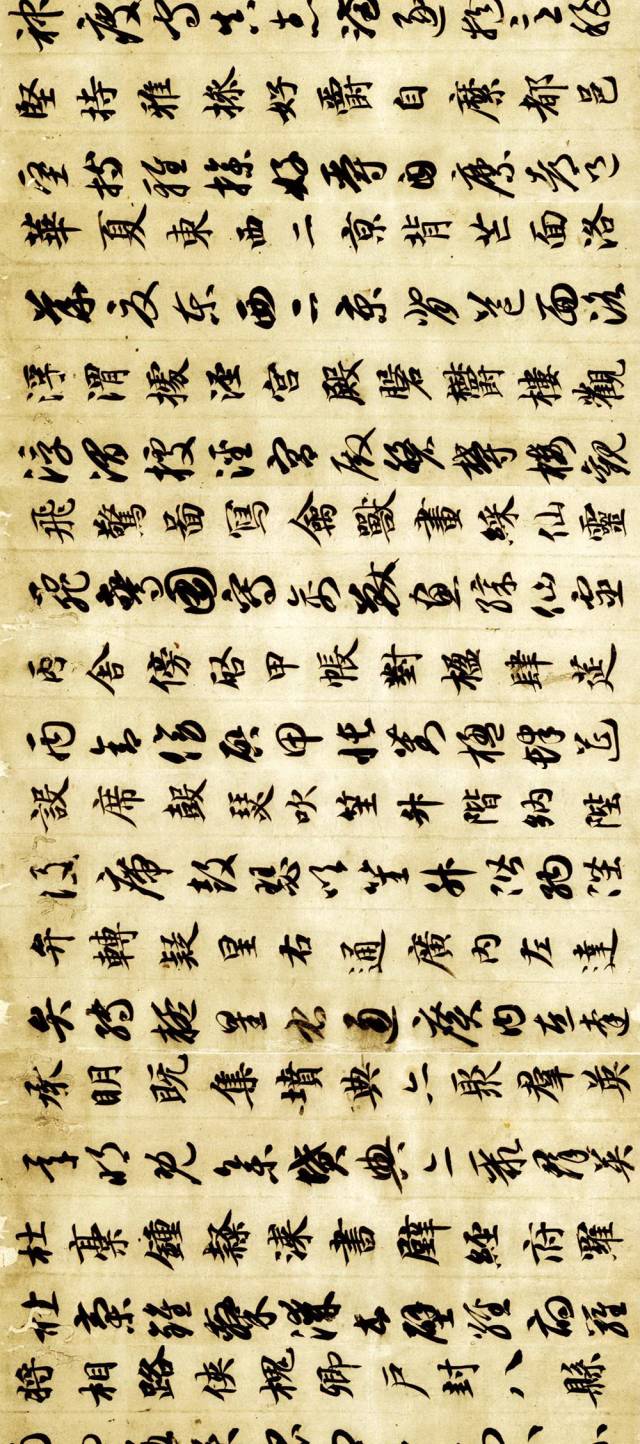 神疲守真志滿逐物意移
堅持雅操好爵自縻都邑
堅持雅操好爵自縻都邑
華夏東西二京背芒面洛
華夏東西二京背芒面洛
浮渭據涇宮殿磐欝樓觀
浮渭據涇宮殿磐欝樓觀
飛驚圖寫禽獸畫綵仙靈
飛驚圖寫禽獸畫綵仙靈
丙舍傍啓甲帳對楹肆筵
丙舍傍啓甲帳對楹肆筵
設席鼓瑟吹笙升階納陛
設席鼓瑟吹笙升階納陛
弁轉疑星右通廣內左達
弁轉疑星右通廣內左達
承明既集墳典亦聚羣英
承明既集墳典亦聚羣英
杜稾鍾隸漆書壁經府羅
杜稾鍾隸漆書壁經府羅
將相路俠槐卿戶封八縣